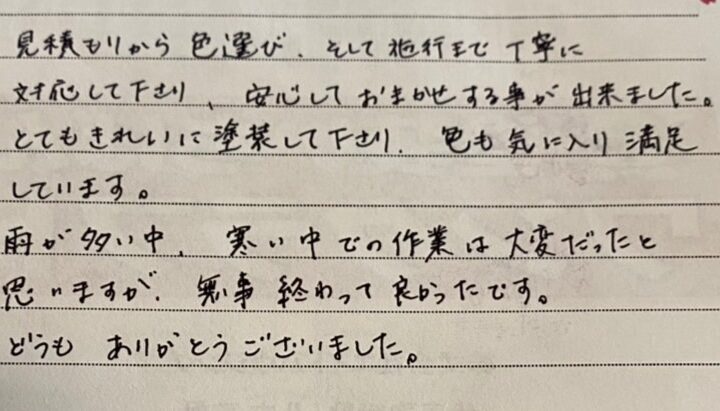 見積もりから色選び、そして施行まで丁寧に
対応して下さり、安心しておまかせする事が出来ました。
とてもきれいに塗装して下さり、色も気に入り満足
しています。
雨が多い中、寒い中での作業は大変だったと
思いますが、無事終わって良かったです。
どうもありがとうございました。